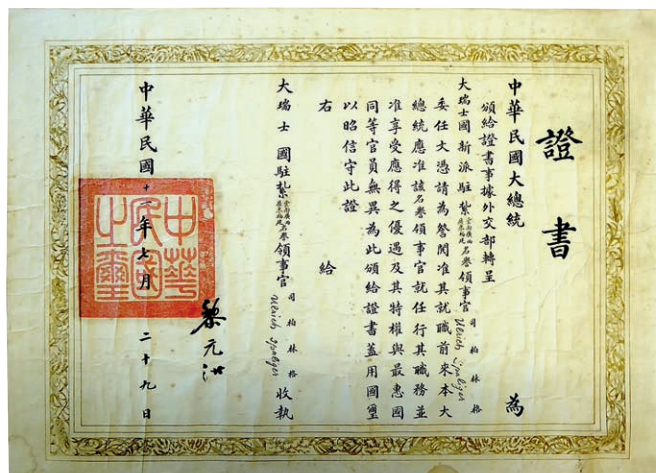 證書
中華民國大總統 為
頒給證書事據外交部轉呈
大瑞士國新派駐紮雲南廣西廣東福建名譽領事官司柏林格 Ulrich Spalinger
委任文憑請為詧閱准其就職前來本大
總統應准該名譽領事官就任行其職務並
准享受應得之優遇及其特權與最惠國
同等官員無異為此頒給證書蓋用國璽
以昭信守此證
右 給
大瑞士國駐紮雲南廣西廣東福建名譽領事官司柏林格 Ulrich Spalinger 收執
黎元洪
中華民國十一年七月二十九日
中華民國之璽